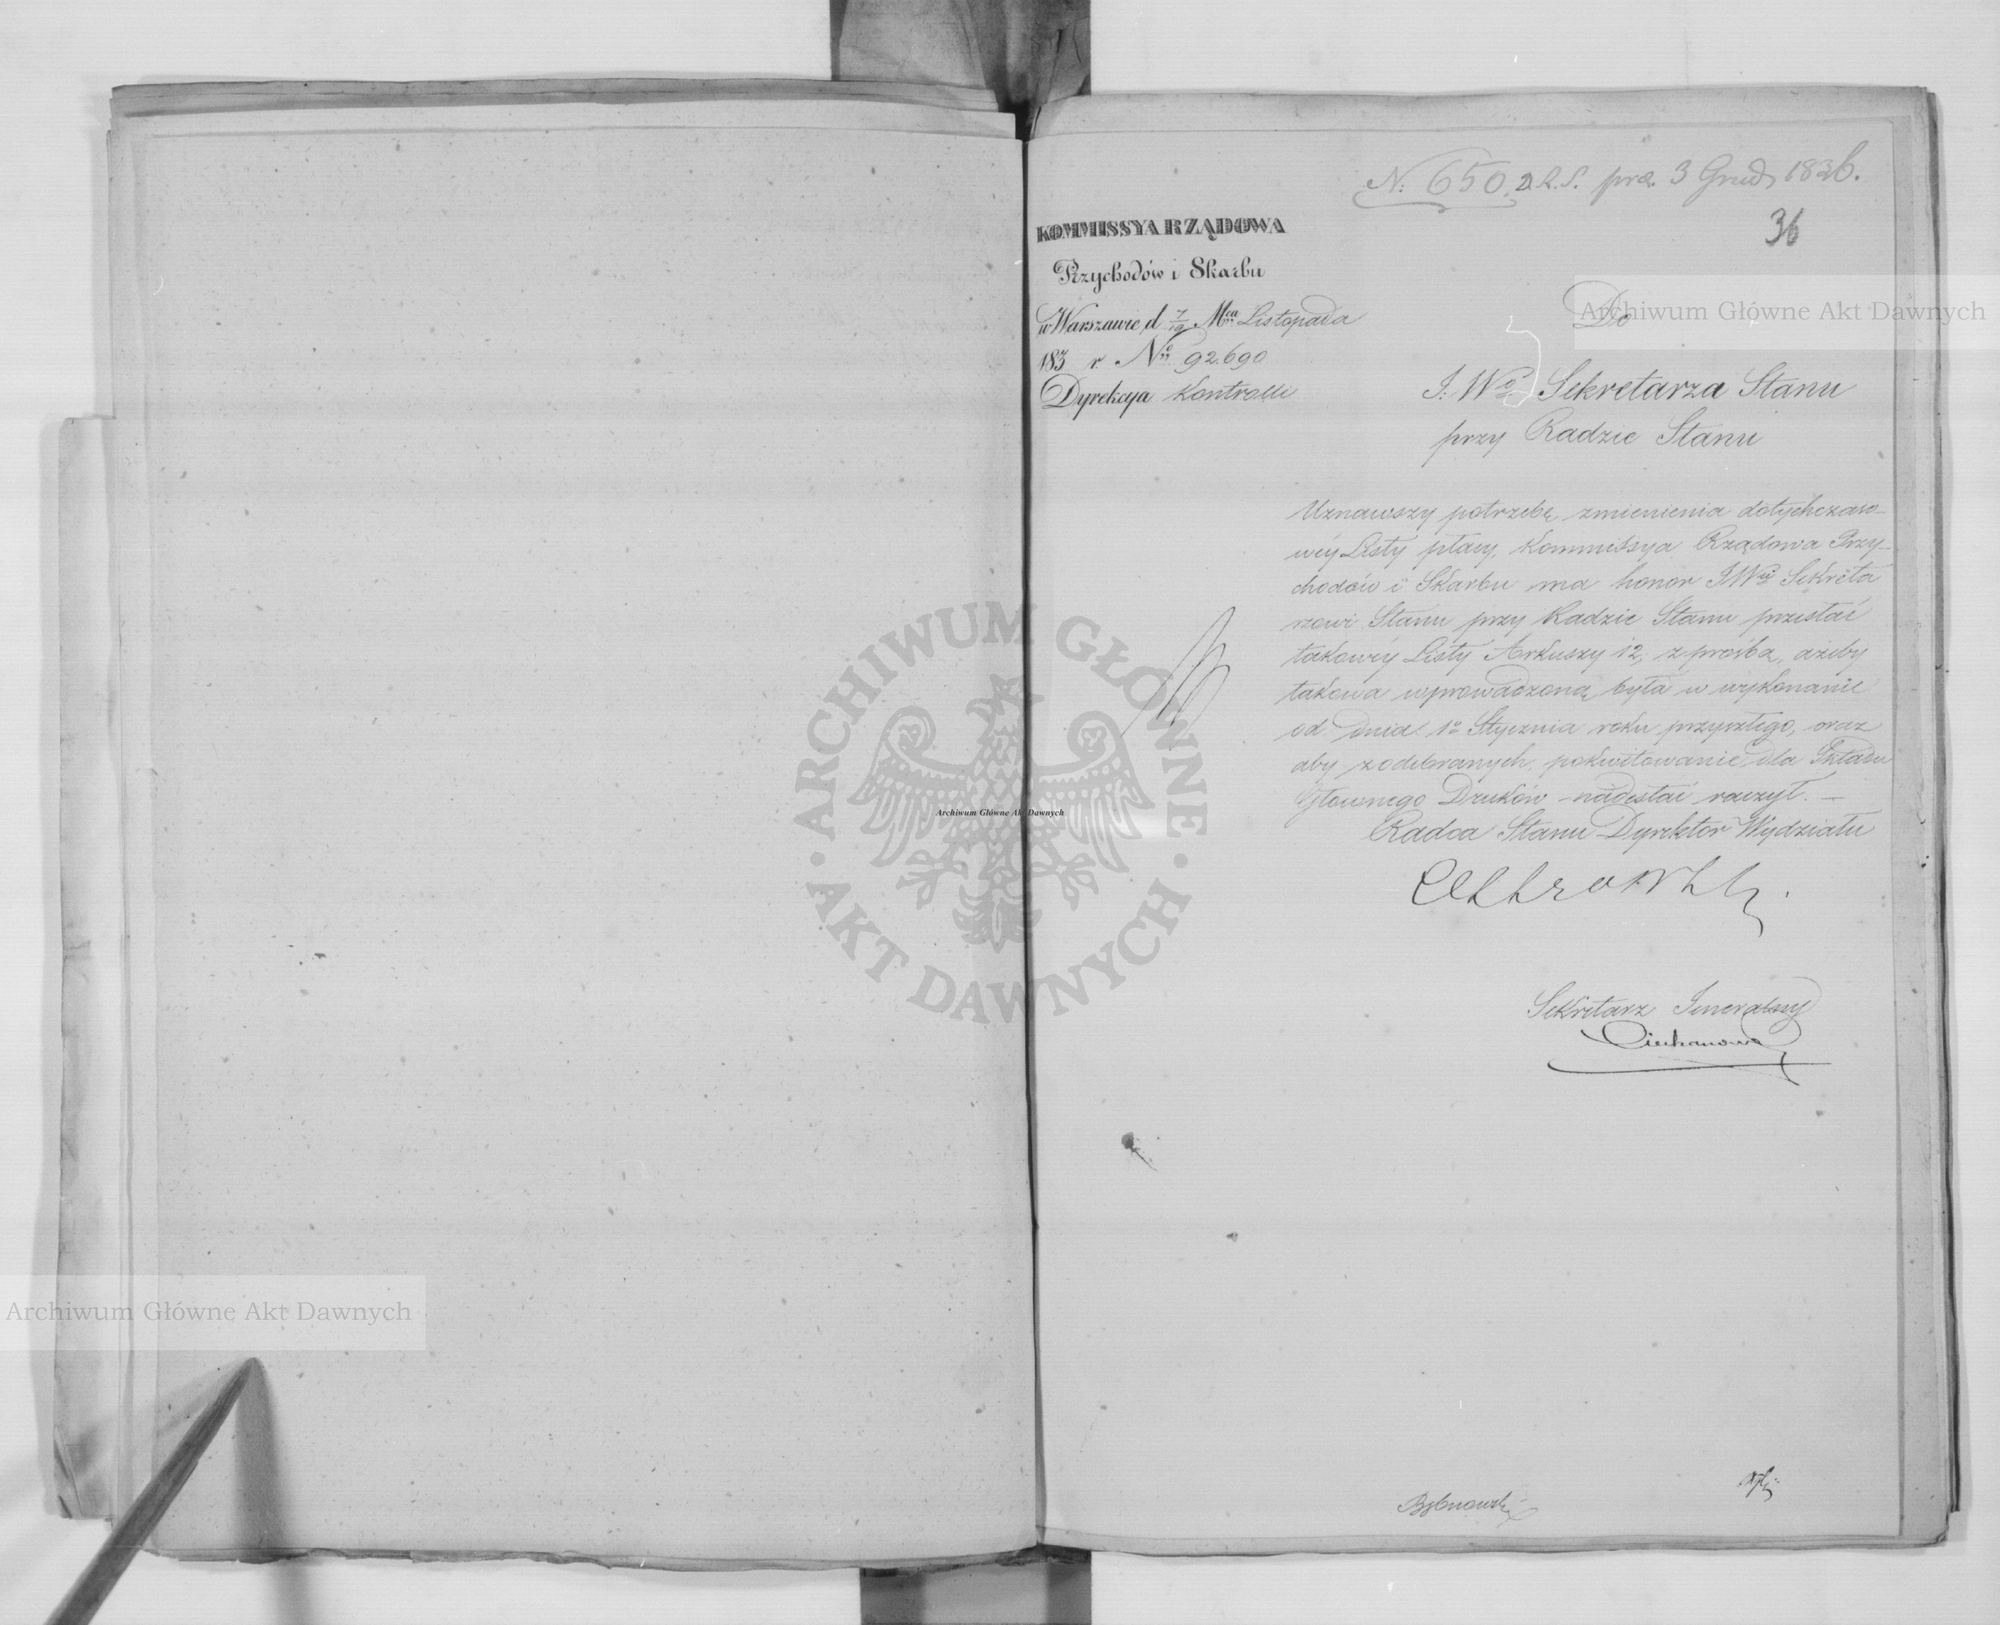 N: 650. D.R.S. prz. 3 Grud. 1836.
36
KOMMISSYA RZĄDOWA
Przychodów i Skarbu
w Warszawie d 7/19 Mca Listopada
183 r. No 92.690
Dyrekcya Kontrolli
Do
J. Wo Sekretarza Stanu
przy Radzie Stanu
Uznawszy potrzebę zmienienia dotychczaso-
wéy Listy płacy, Kommissya Rządowa Przy-
chodów i Skarbu ma honor JWmu Sekreta
rzowi Stanu przy Radzie Stanu przesłać
takowéy Listy Arkuszy 12, z prośbą, ażeby
takowa wprowadzoną była w wykonanie
od dnia 1o Stycznia roku przyszłego, oraz
aby z odebranych, pokwitowanie dla Składu
Głównego Druków nadesłać raczył. —
Radca Stanu Dyrektor Wydziału
Sekretarz Jeneralny
Archiwum Główne Akt Dawnych
Archiwum Główne Akt Dawnych
Archiwum Główne Akt Dawnych
ARCHIWUM GŁÓWNE
AKT DAWNYCH